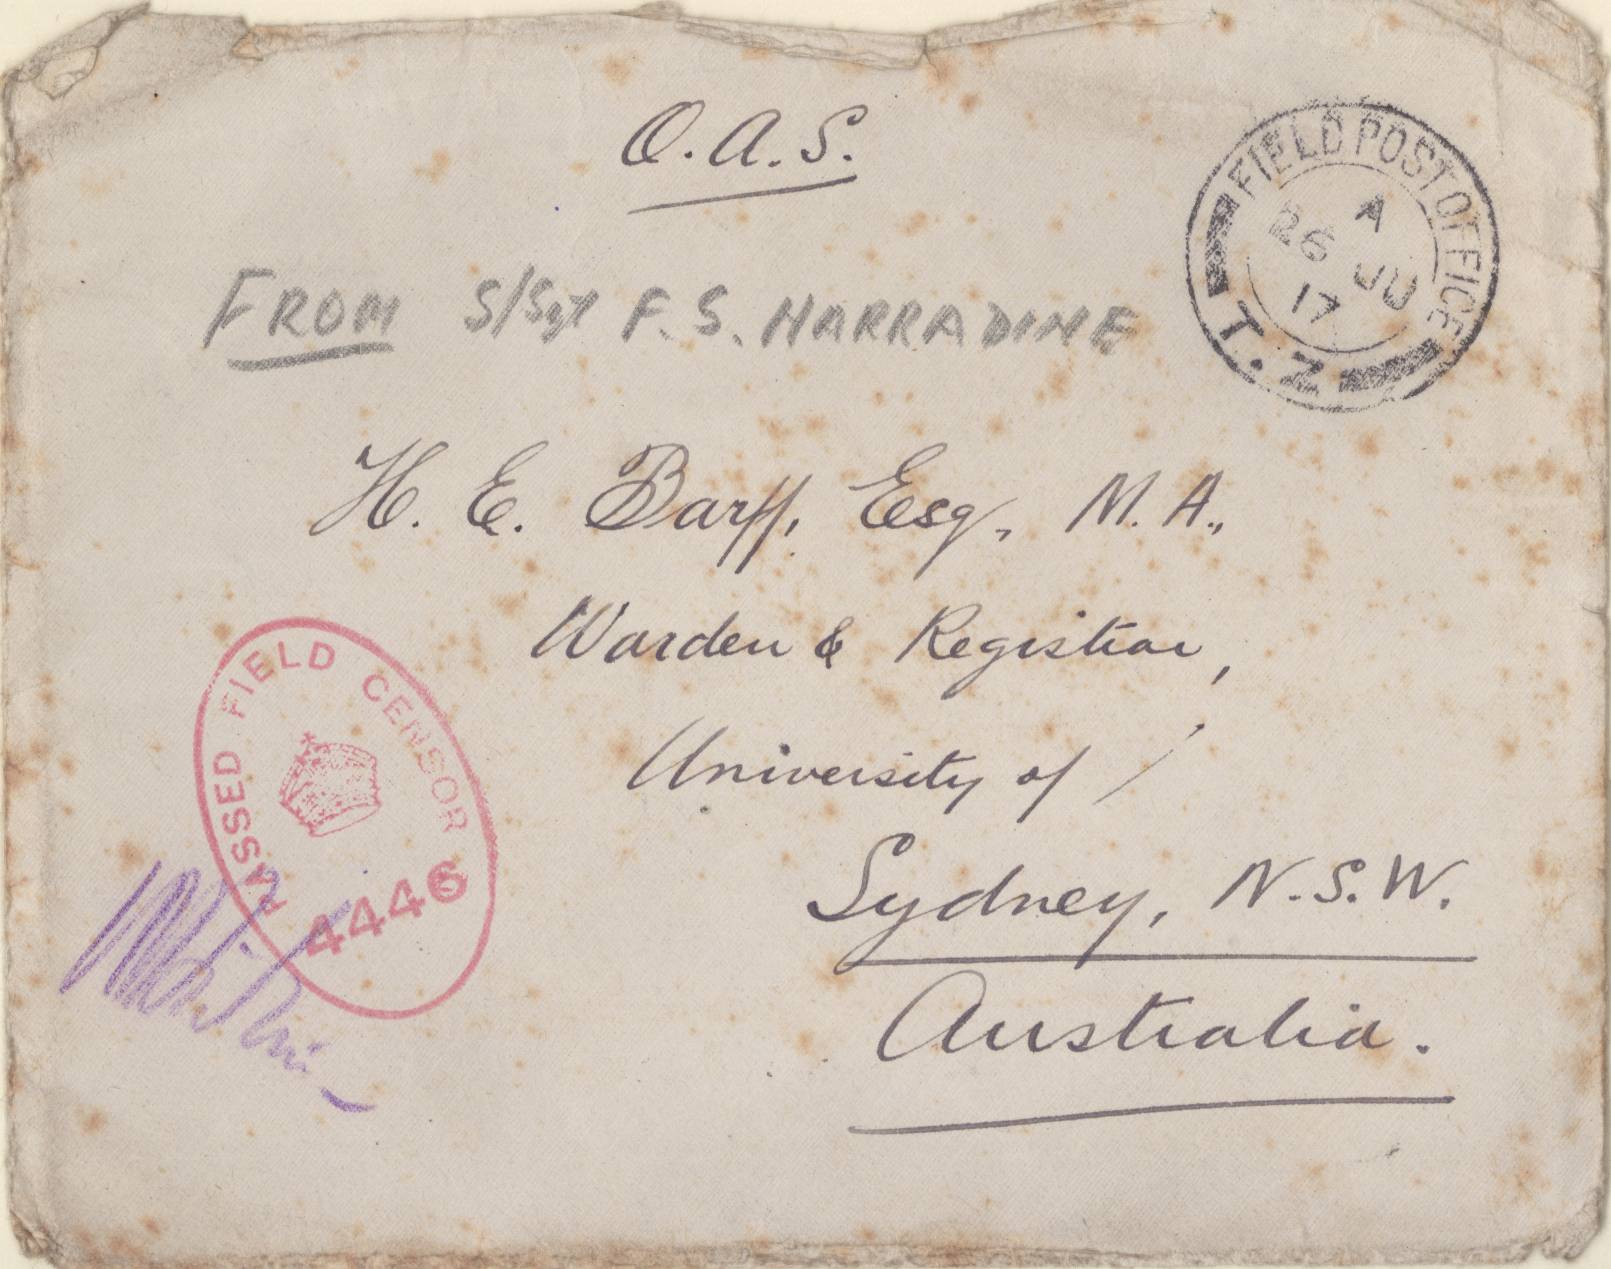 O.A.S.
FIELD POST OFFICE
A
26 JU
17
T.Z
FROM S/Sgt F.S. HARRADINE
H. E. Barff, Esq., M.A.,
Warden & Registrar,
University of
PASSED FIELD CENSOR
4446
Sydney, N.S.W.
Australia.